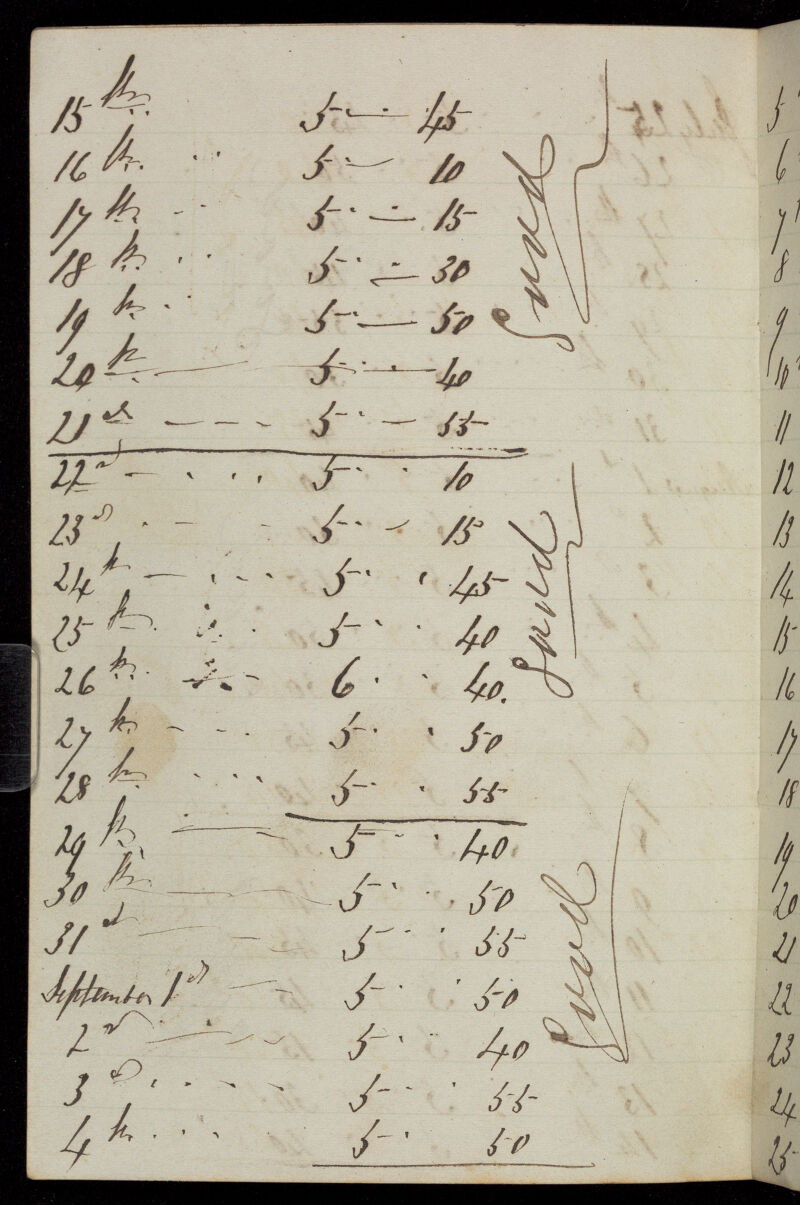 15th 5 — 45
16th 5 — 10
17th 5 — 15
18th 5 — 30
19th 5 — 50
20th 5 — 40
21st 5 — 55
Good
22d 5 10
23d 5 15
24th 5 45
25th 5 40
26th 6 40.
27th 5 50
28th 5 55
Good
29th 5 40
30th 5 50
31st 5 55
September 1st 5 50
2d 5 40
3d 5 55
4th 5 50
Good
5
6
7
8
9
10
11
12
13
14
15
16
17
18
19
20
21
22
23
24
25